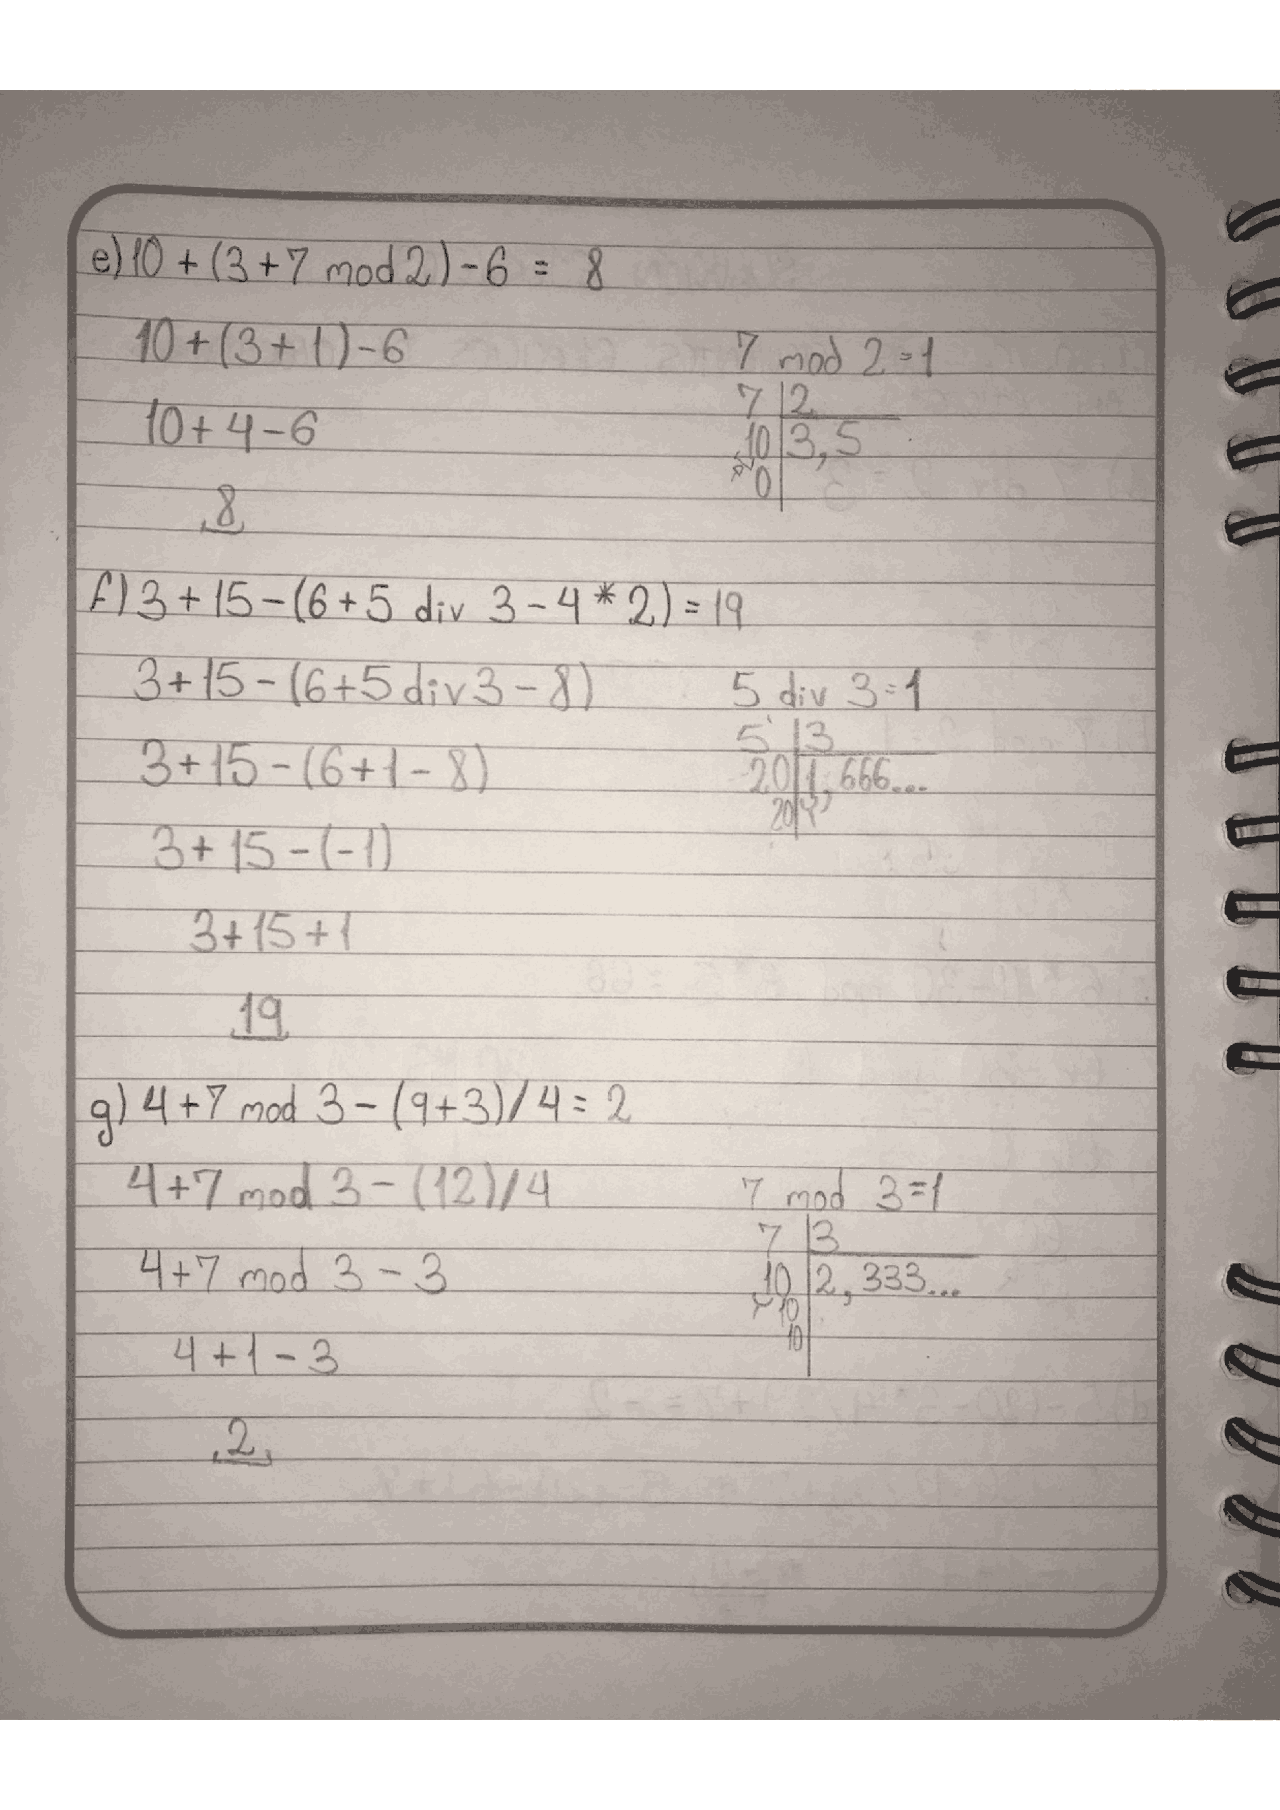 e) 10 + (3 + 7 mod 2) - 6 = 8
10 + (3 + 1) - 6
7 mod 2 = 1
7 2
10 + 4 - 6
10 3,5
0
8
f) 3 + 15 - (6 + 5 div 3 - 4 * 2) = 19
3 + 15 - (6 + 5 div 3 - 8)
5 div 3 = 1
5 3
3 + 15 - (6 + 1 - 8)
20 1,666...
20
3 + 15 - (-1)
3 + 15 + 1
19
g) 4 + 7 mod 3 - (9 + 3) / 4 = 2
4 + 7 mod 3 - (12) / 4
7 mod 3 = 1
7 3
4 + 7 mod 3 - 3
10 2,333...
10
10
4 + 1 - 3
2